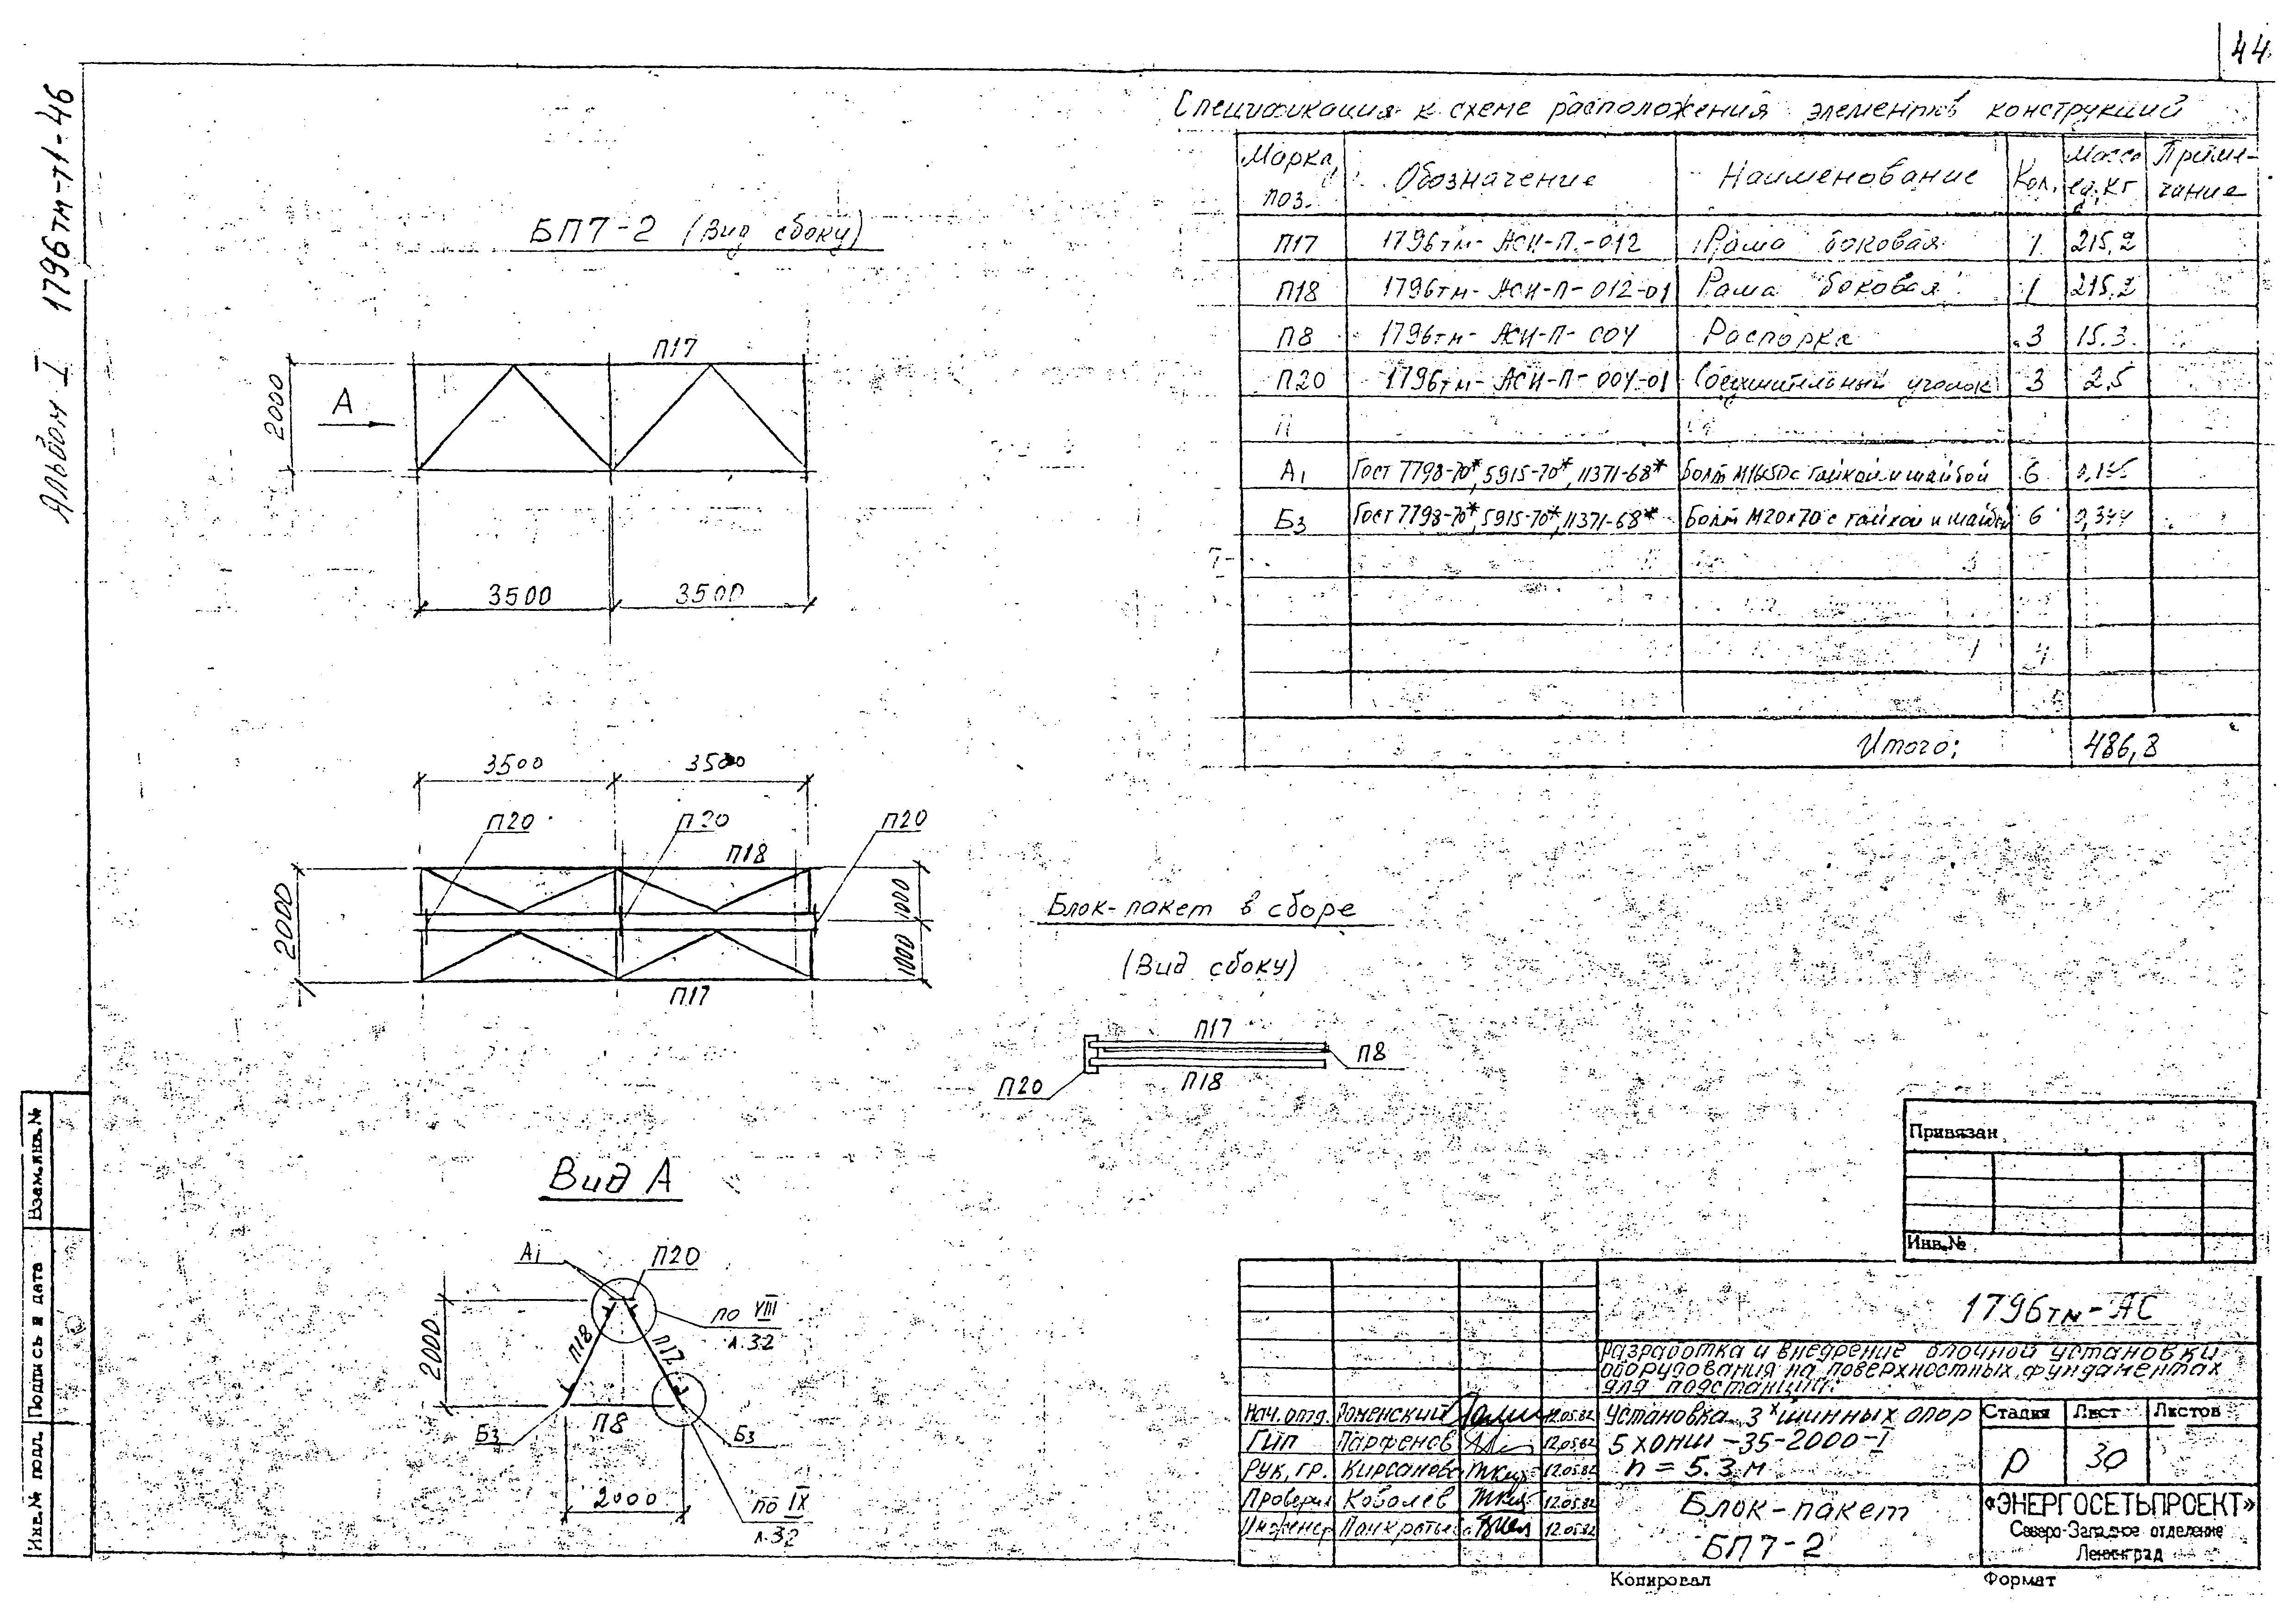 44
Альбом I 1796тм-т1-46
Спецификация к схеме расположения элементов конструкций
Марка, поз. Обозначение Наименование Кол. Масса ед, кг Примечание
П17 1796тм-АСИ-П-012 Рама боковая 1 215,2
П18 1796тм-АСИ-П-012-01 Рама боковая 1 215,2
П8 1796тм-АСИ-П-004 Распорка 3 15.3
П20 1796тм-АСИ-П-004-01 Соединительный уголок 3 2,5
А1 Гост 7798-70*, 5915-70*, 11371-68* Болт М16х50 с гайкой и шайбой 6
Б3 Гост 7798-70*, 5915-70*, 11371-68* Болт М20х70 с гайкой и шайбой 6 0,344
Итого: 486,8
БП7-2 (Вид сбоку)
П17
2000
А
3500 3500
3500 3500
П20 П20 П20
П18
2000
1000
1000
П17
Блок-пакет в сборе
(Вид сбоку)
П17
П8
П20
П18
Вид А
А1 П20
по VIII
л.32
2000
П18 П17
Б3 П8 Б3
2000
по IX
л.32
Взам.инв.№
Подпись и дата
Инв.№ подл.
Привязан
Инв.№
1796тм-АС
Разработка и внедрение блочной установки
оборудования на поверхностных фундаментах
для подстанций.
Нач.отд. Роменский 12.05.82
Гип Парфенов 12.05.82
Рук. гр. Кирсанова 12.05.82
Проверил Ковалев 12.05.82
Инженер 12.05.82
Установка 3х шинных опор
5хОНШ-35-2000-I
h = 5.3 м
Стадия Лист Листов
Р 30
Блок-пакет
БП7-2
«ЭНЕРГОСЕТЬПРОЕКТ»
Северо-Западное отделение
Ленинград
Копировал Формат